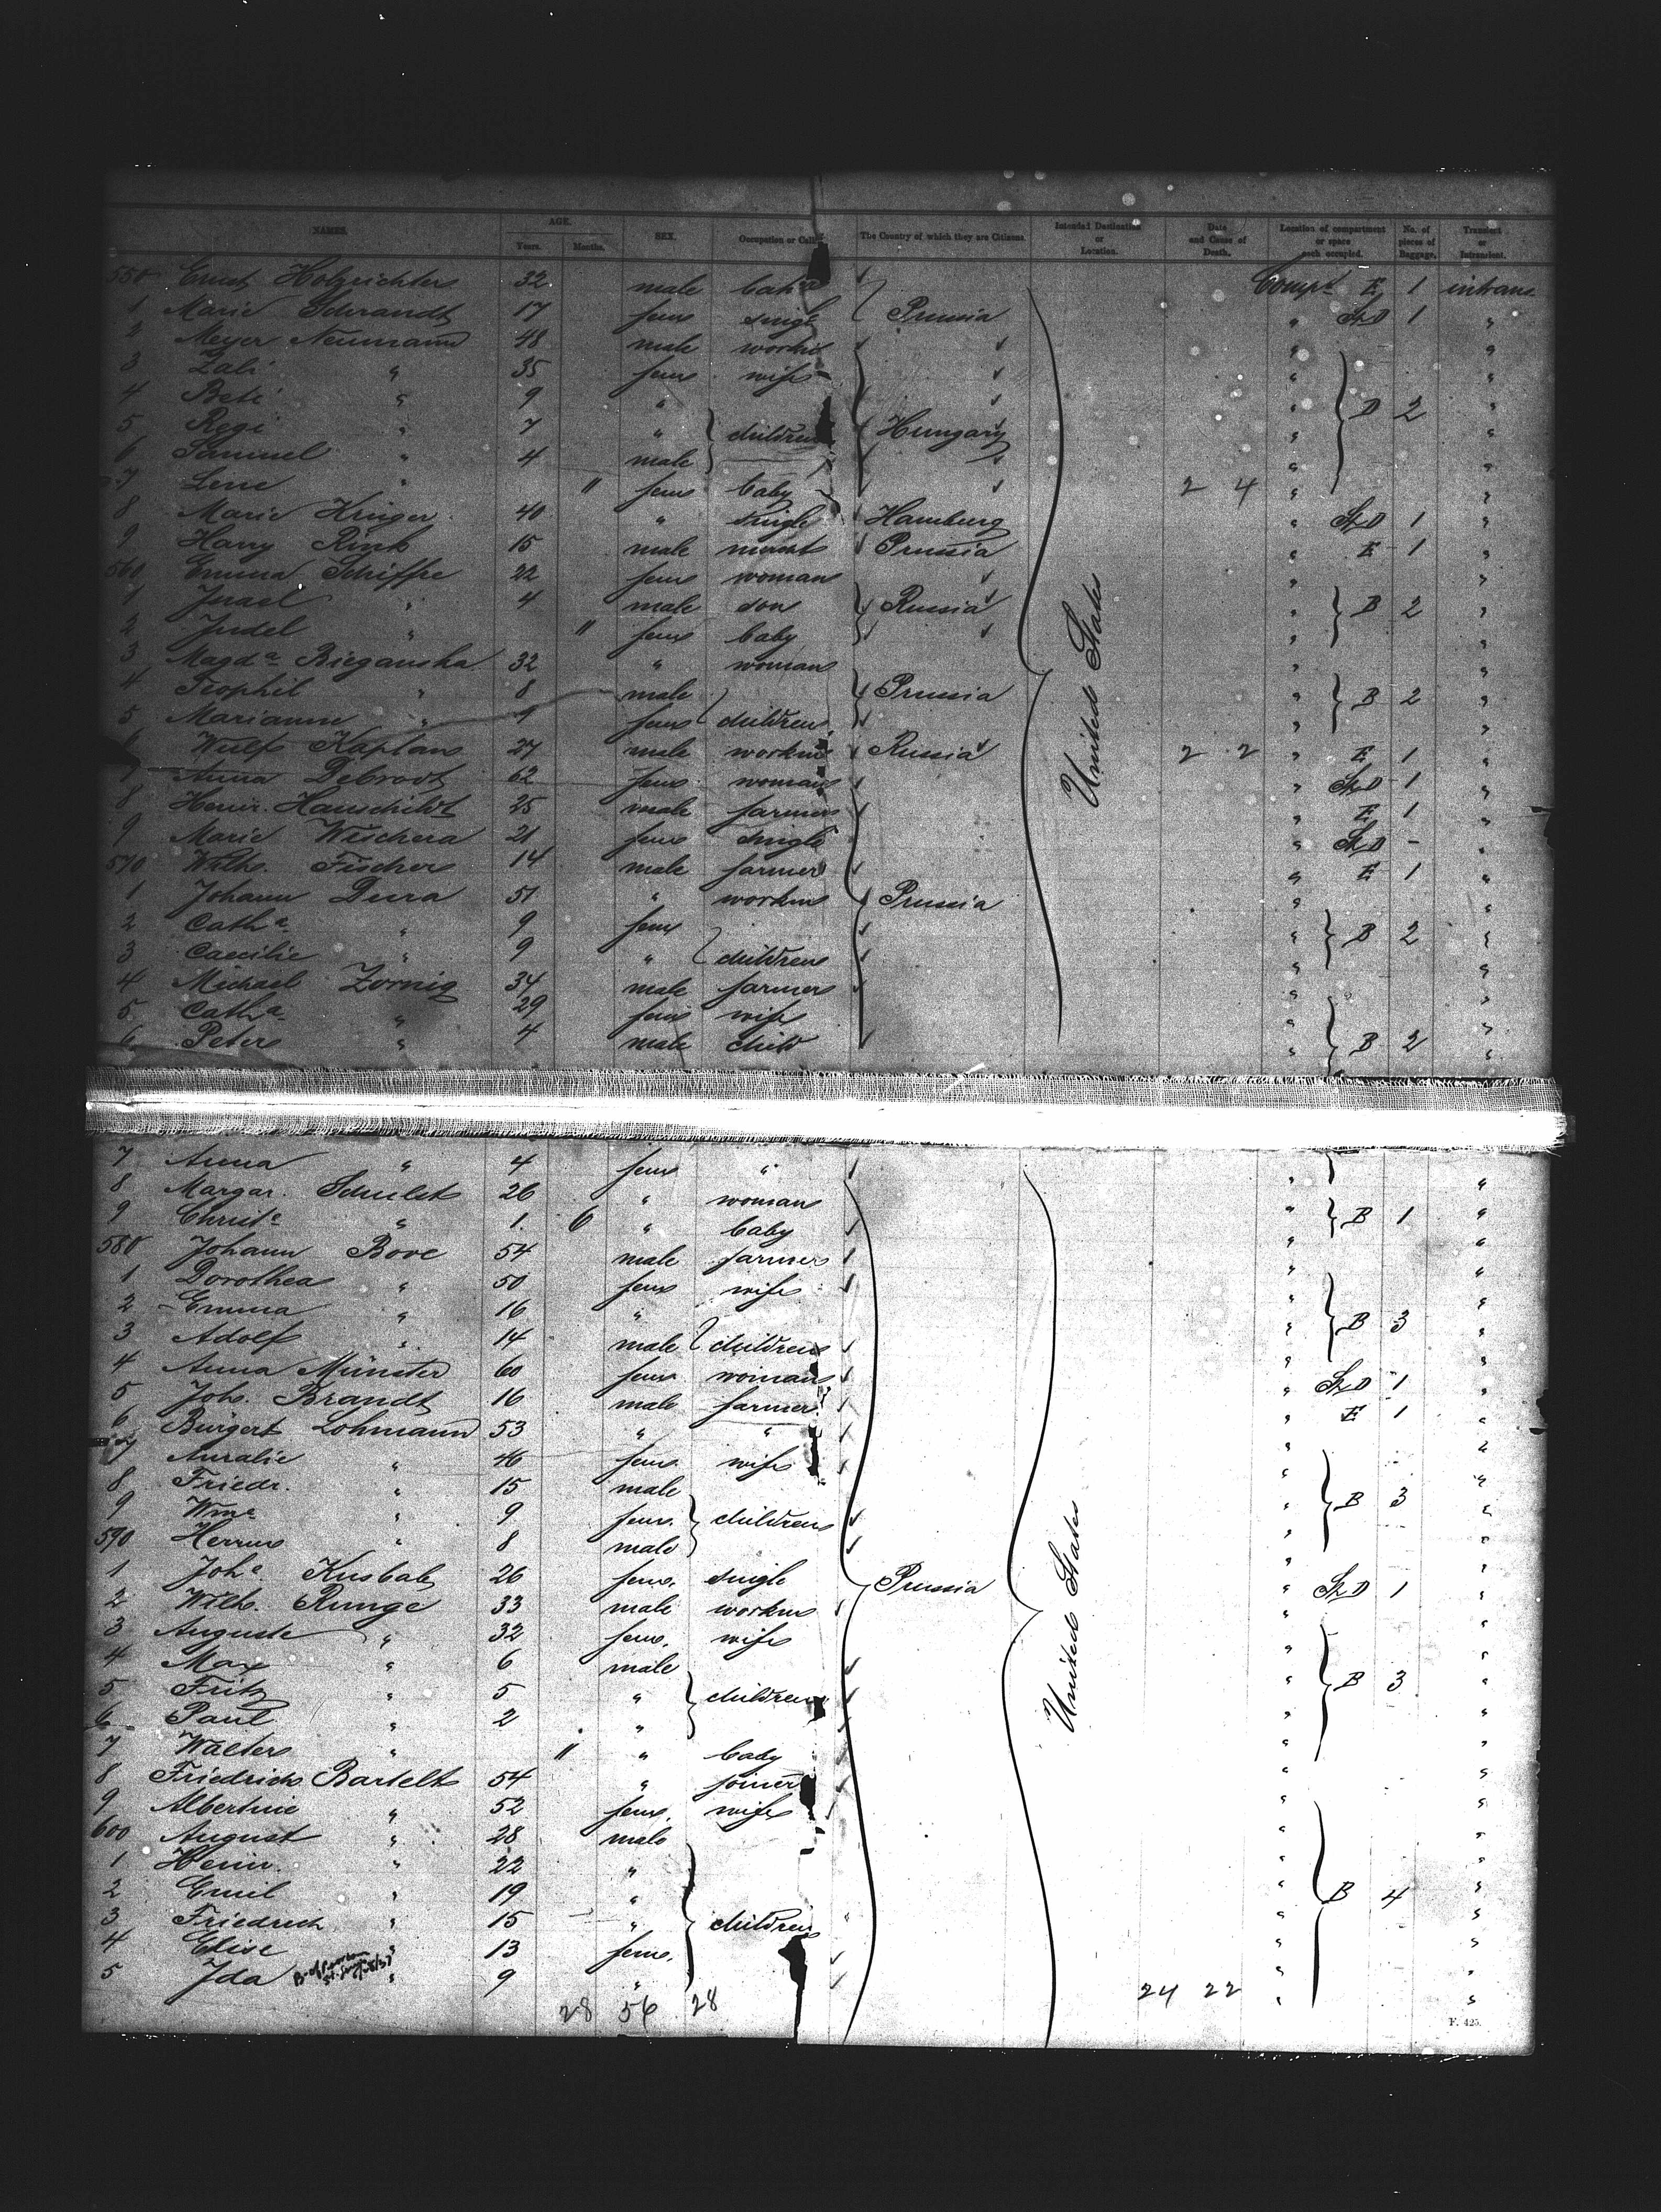 NAMES. AGE. Years. Months. SEX. Occupation or The Country of which they are Citizens. Intended Destination or Location. Date and Cause of Death. Location of compartment or space each occupied. No. of pieces of Baggage. Transient or Intransient.
550 Ernst Holzrichter 32 male Compt E 1 intrans
1 Marie 17 fem Prussia St D 1 "
2 Meyer Neumann 48 male " "
3 Zali " 35 fem wife " "
4 Beti " 9 " " D 2 "
5 Regi " 7 " children Hungary " "
6 Samuel " 4 male " "
7 Lene " 11 fem baby 2 4 " "
8 Marie Krüger 40 " single Hamburg " St D 1 "
9 Harry Rink 15 male Prussia " E 1 "
560 Emma Schiffre 22 fem woman " "
1 Israel " 4 male son Russia " B 2 "
2 Judel " 11 fem baby " "
3 Magda Bieganska 32 " woman " "
4 Teophil " 8 male Prussia " B 2 "
5 Marianne " 4 fem children " "
6 Wulf Kaplan 27 male workm Russia 2 2 " E 1 "
7 Anna Debrodt 62 fem woman " St D 1 "
8 Heinr. Hauschildt 25 male farmer " E 1 "
9 Marie Wischera 21 fem single " St D - "
570 Wilh. Fischer 14 male farmer " E 1 "
1 Johann Dura 51 " workm Prussia " "
2 Catha " 9 fem " B 2 "
3 Caecilie " 9 " children " "
4 Michael Zornig 34 male farmer " "
5 Catha " 29 fem wife " "
6 Peter " 4 male child " B 2 "
United States
7 Anna " 4 fem " " "
8 Margar. Schult 26 " woman " "
9 Christe " 1 6 " baby " B 1 "
580 Johann Bove 54 male farmer " "
1 Dorothea " 50 fem wife " "
2 Emma " 16 " " "
3 Adolf " 14 male children " B 3 "
4 Anna Münster 60 fem woman " St D 1 "
5 Joh. Brandt 16 male farmer " E 1 "
6 Burgert Lohmann 53 " " " "
7 Auralie " 46 fem wife " "
8 Friedr. " 15 male " "
9 Wme " 9 fem. children " B 3 "
590 Herm " 8 male " "
1 Johe Kusbab 26 fem. single Prussia " St D 1 "
2 Wilh. Runge 33 male workm " "
3 Auguste " 32 fem. wife " "
4 Max " 6 male " "
5 Fritz " 5 " children " B 3 "
6 Paul " 2 " " "
7 Walter " 11 " baby " "
8 Friedrich Bartelt 54 " joiner " "
9 Albertine " 52 fem. wife " "
600 August " 28 male " "
1 Heinr. " 22 " " "
2 Emil " 19 " " B 4 "
3 Friedrich " 15 " children " "
4 Elise " 13 fem. " "
5 Ida " 9 " " "
United States
28 56 28 24 22
F. 425.